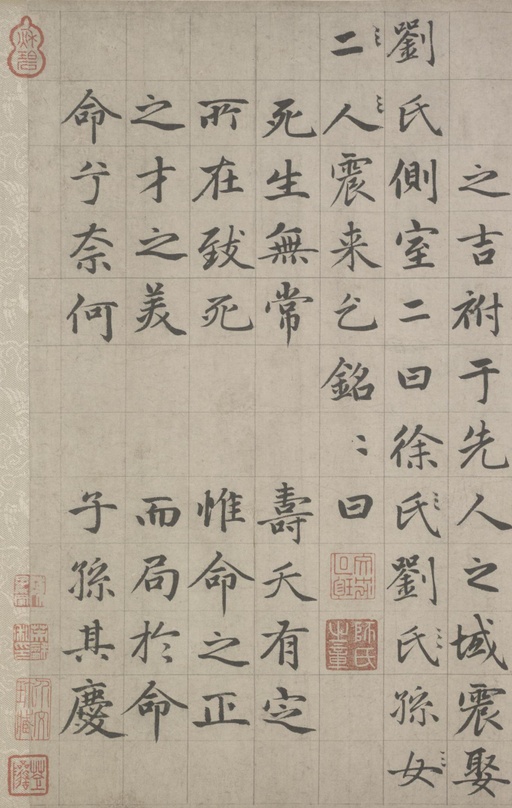 之吉祔于先人之域震娶
劉氏側室二曰徐氏劉氏孫女
二人震来乞銘〻曰
死生無常 壽夭有定
所在致死 惟命之正
之才之美 而局於命
命兮奈何 子孫其慶